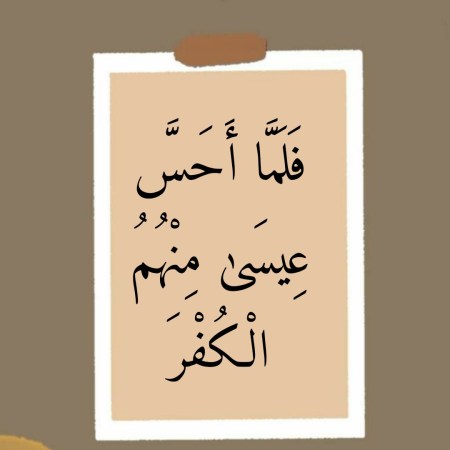 فَلَمَّا أَحَسَّ
عِيسَىٰ مِنْهُمُ
الْكُفْرَ